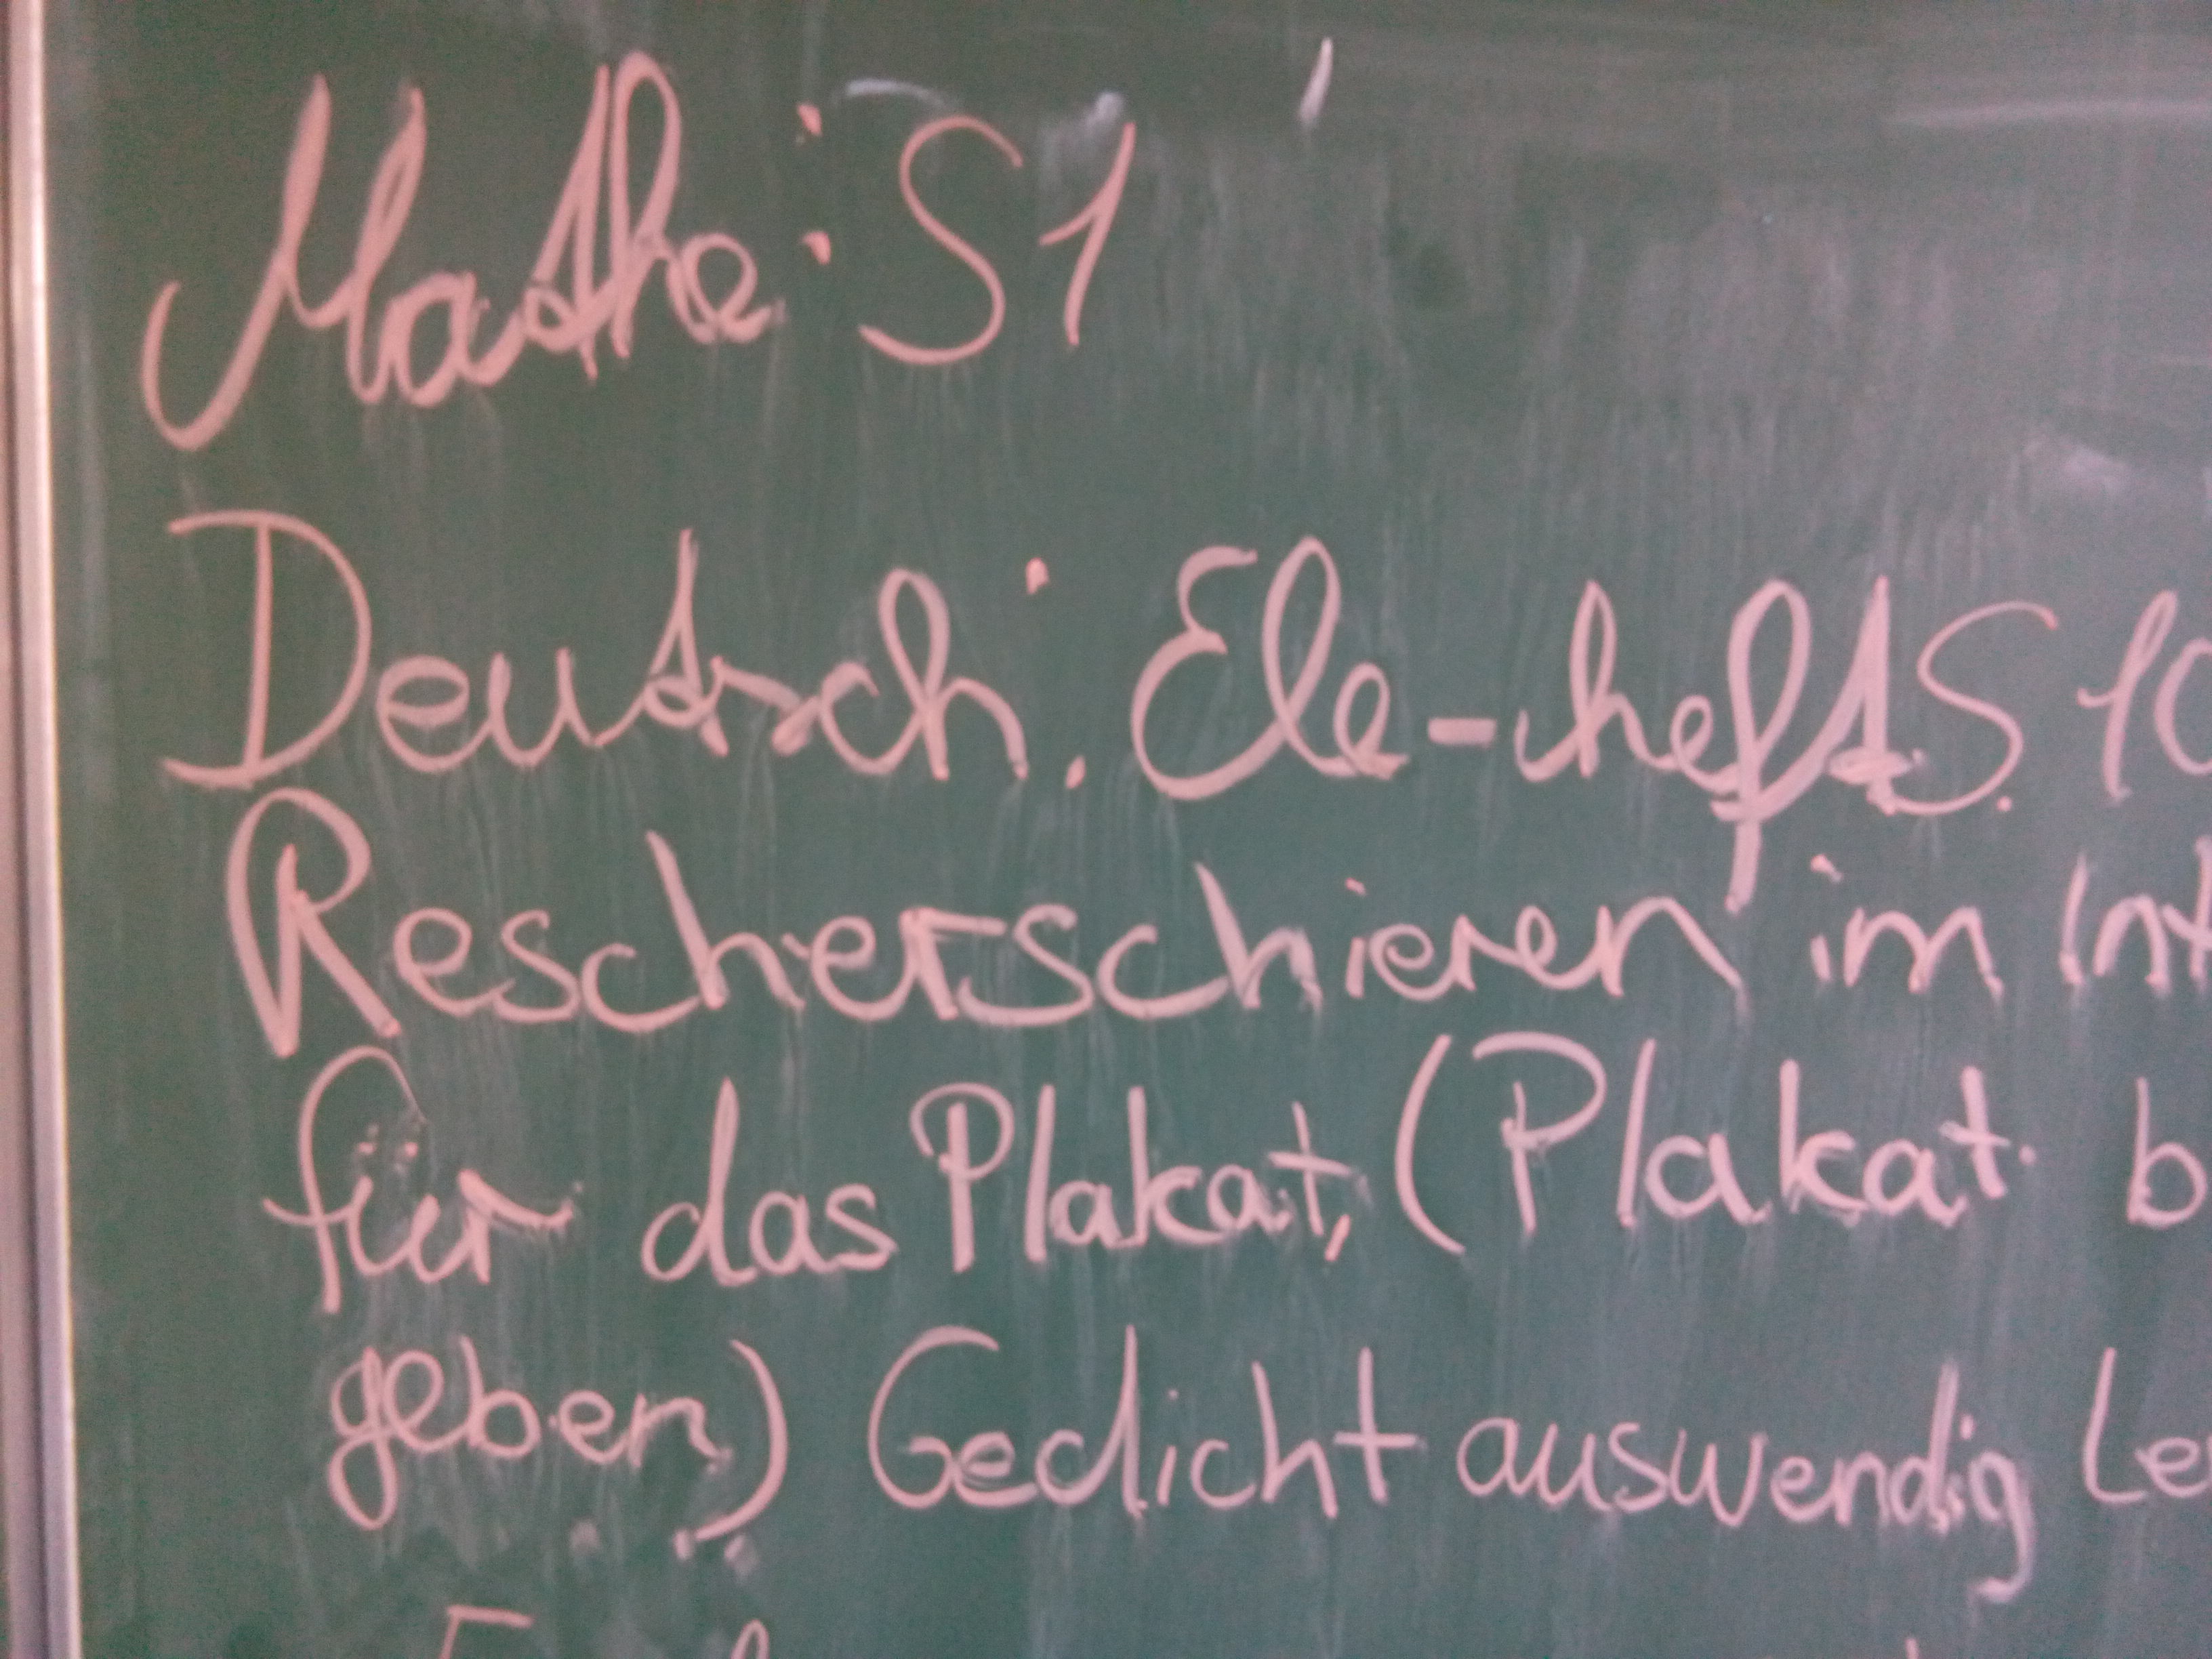 Mathe: S1
Deutsch: Ele-heft S. 10
Rescherschieren im Int
für das Plakat, (Plakat b
geben) Gedicht auswendig Le